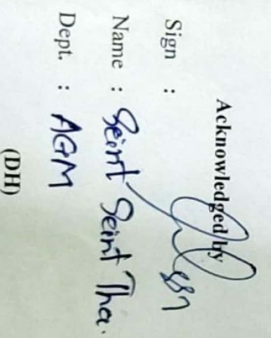 Acknowledged by
Sign :
Name : Seint Seint Tha.
Dept. : AGM
(DH)